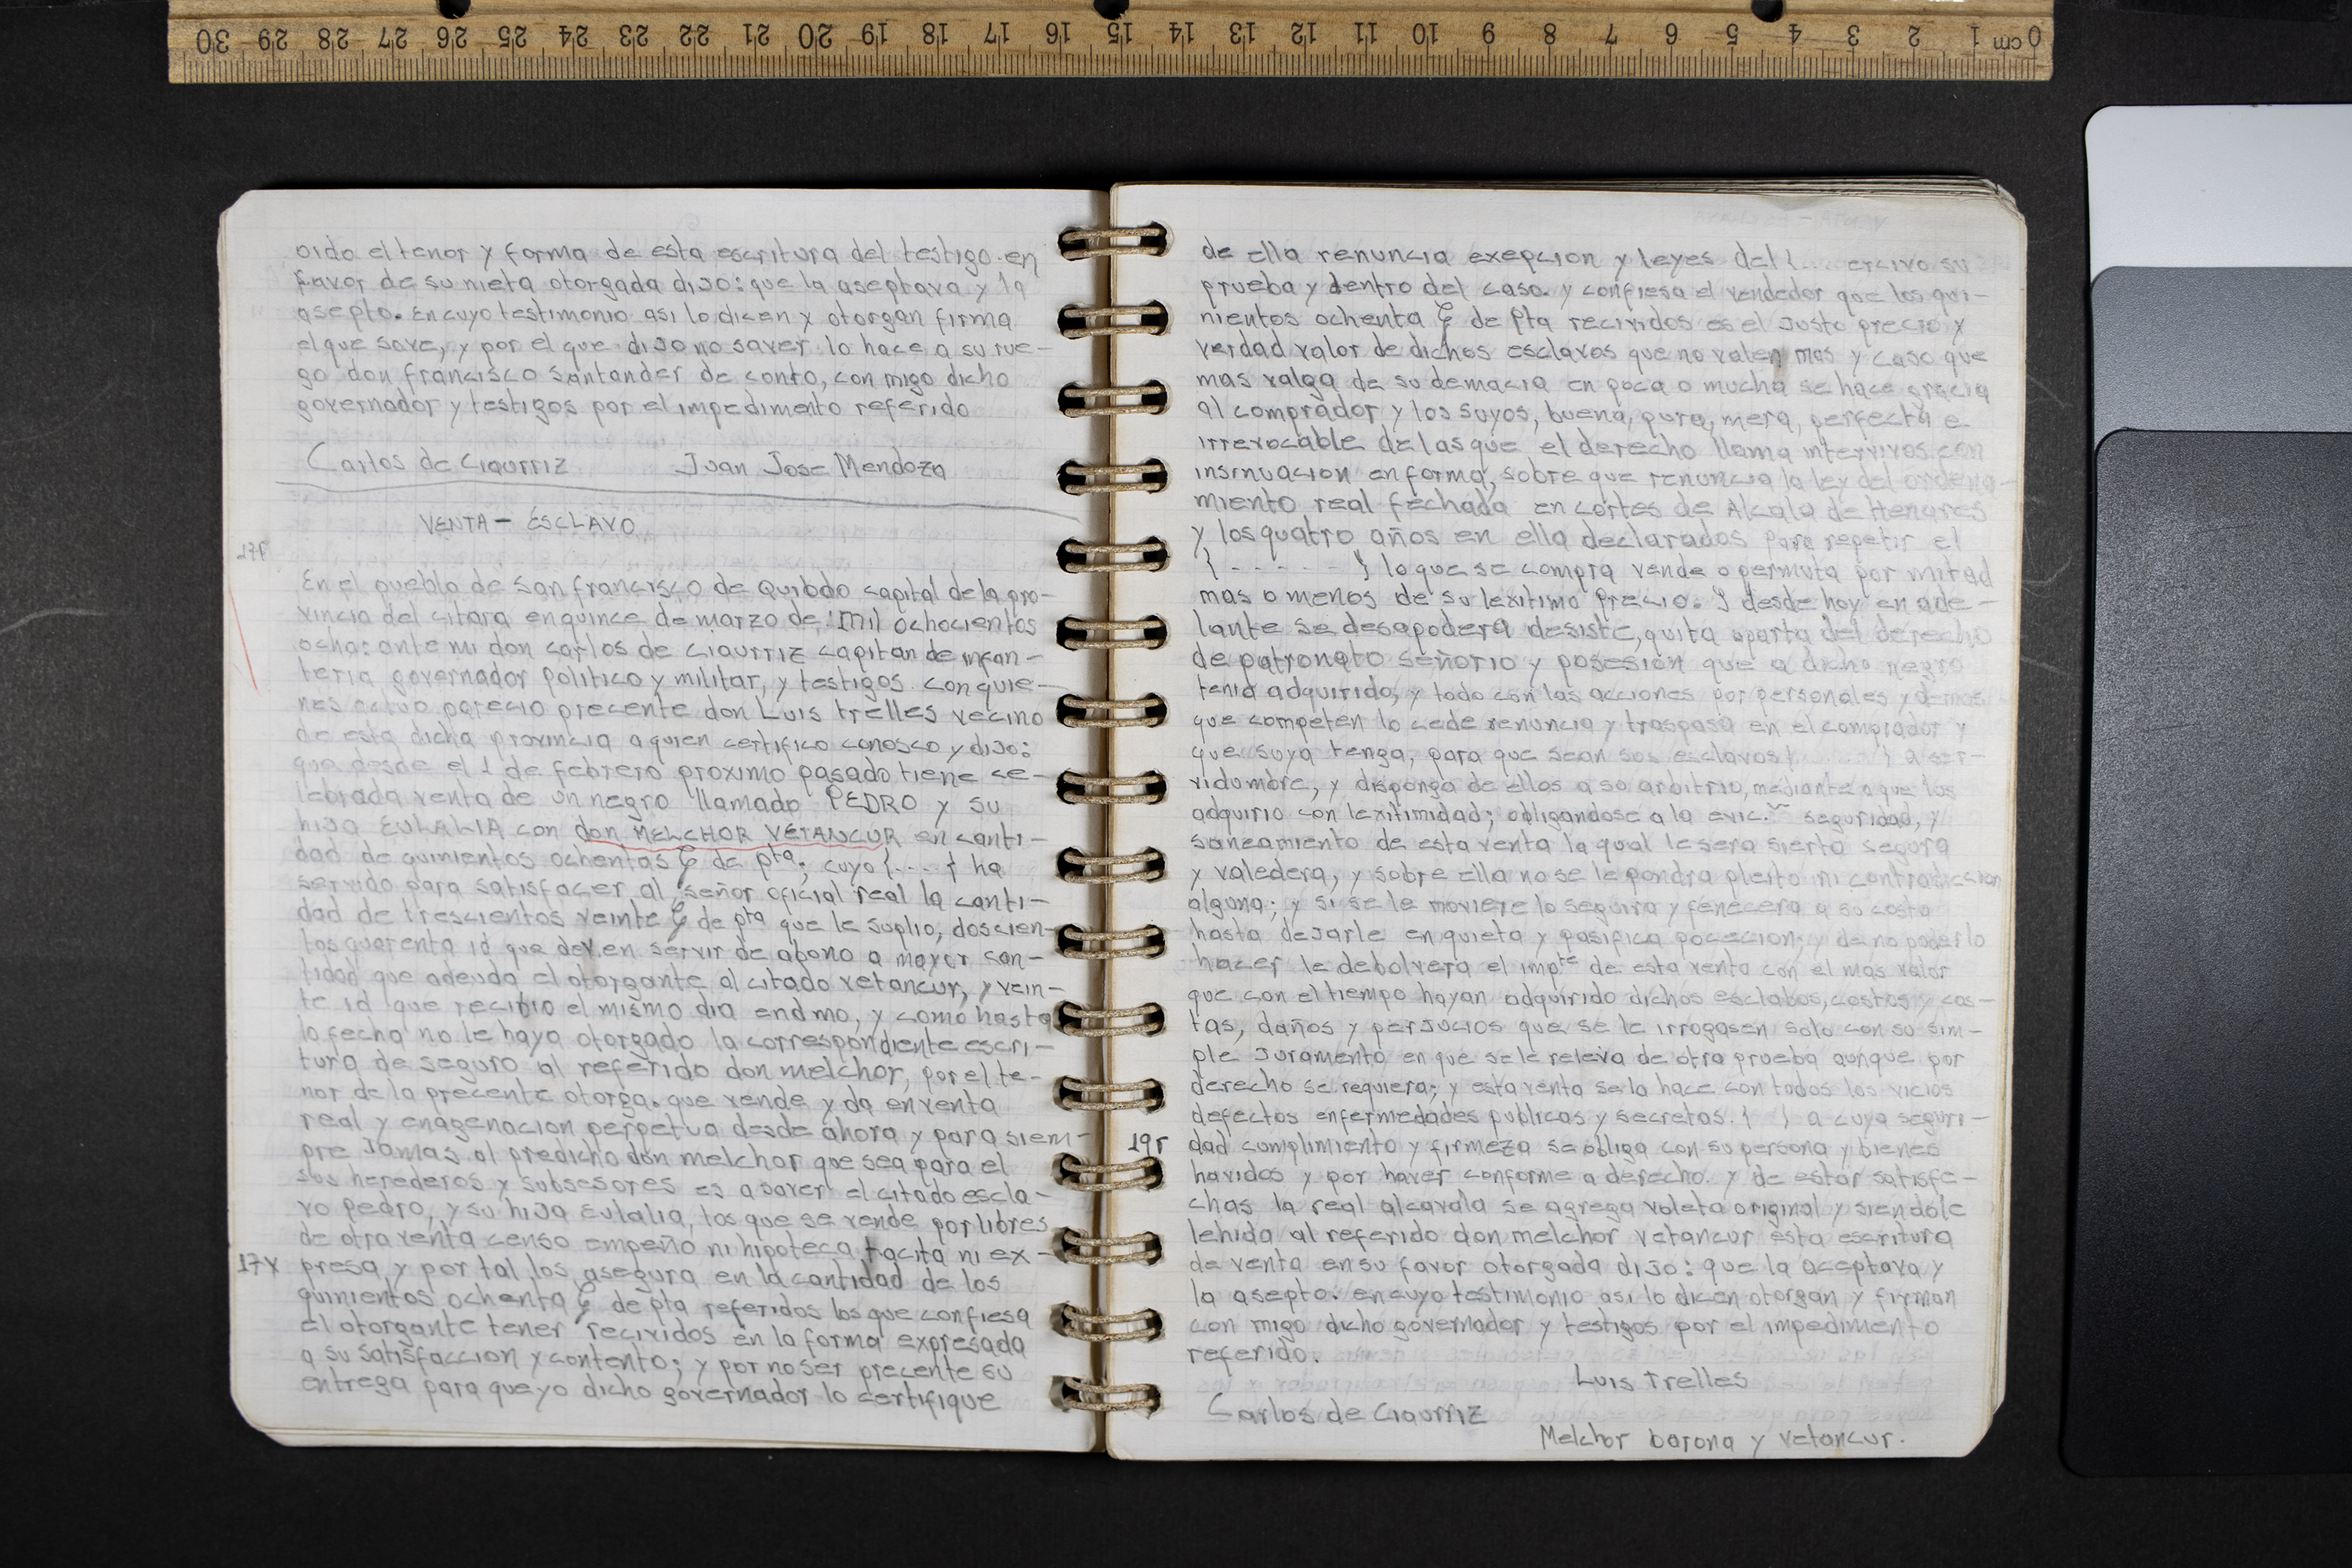 oido el tenor y forma de esta escritura del testigo en
favor de su nieta otorgada dijo: que la aseptava y la
asepto. En cuyo testimonio asi lo dicen y otorgan firma
el que save, y por el que dijo no saver lo hace a su rue-
go don francisco santander de conto, con migo dicho
governador y testigos por el impedimento referido
Carlos de Ciaurriz Juan Jose Mendoza
VENTA - ESCLAVO
17r
En el pueblo de San francisco de Quibdo capital de la pro-
vincia del citara en quince de marzo de mil ochocientos
ocho: ante mi don carlos de Ciaurriz capitan de infan-
teria governador politico y militar, y testigos con quie-
nes actuo parecio precente don Luis trelles vecino
de esta dicha provincia a quien certifico conosco y dijo:
que desde el 1 de febrero proximo pasado tiene se-
lebrada venta de un negro llamado PEDRO y su
hija EULALIA con don MELCHOR VETANCUR en canti-
dad de quinientos ochentas ₲ de pta; cuyo {....} ha
servido para satisfacer al señor oficial real la canti-
dad de trescientos veinte ₲ de pta que le suplio, doscien-
tos quarenta id que deven servir de abono a mayor can-
tidad que adeuda el otorgante al citado vetancur, y vein-
te id que recibio el mismo dia endmo, y como hasta
lo fecha no le haya otorgado la correspondiente escri-
tura de seguro al referido don melchor, por el te-
nor de la precente otorga. que vende y da en venta
real y enagenacion perpetua desde ahora y para siem-
pre Jamas al predicho don melchor que sea para el
sus herederos y subsesores es a saver el citado escla-
vo pedro, y su hija Eulalia, los que se vende por libres
de otra venta censo empeño ni hipoteca tacita ni ex-
17v presa y por tal los asegura en la cantidad de los
quinientos ochenta ₲ de pta referidos los que confiesa
el otorgante tener recividos en la forma expresada
a su satisfaccion y contento; y por no ser precente su
entrega para que yo dicho governador lo certifique
de ella renuncia exepcion y leyes del {... ercivo su
prueba y dentro del caso. y confiesa el vendedor que los qui-
nientos ochenta ₲ de pta recividos es el justo precio y
verdad valor de dichos esclavos que no valen mas y caso que
mas valga de su demacia en poca o mucha se hace gracia
al comprador y los suyos, buena, pura, mera, perfecta e
irrevocable de las que el derecho llama intervivos con
insinuacion en forma, sobre que renuncia la ley del ordena-
miento real fechada en cortes de Alcala de Henares
y los quatro años en ella declarados para repetir el
{ - - - - - } lo que se compra vende o permuta por mitad
mas o menos de su lexitimo precio. y desde hoy en ade-
lante se desapodera desiste, quita aparta del derecho
de patronato señorio y posesion que a dicho negro
tenia adquirido, y todo con las acciones por personales y demas
que competen lo cede renuncia y traspasa en el comprador y
que suya tenga, para que sean sus esclavos { } a ser-
vidumbre, y disponga de ellos a so arbitrio, mediante a que los
adquirio con lexitimidad; obligandose a la evic.n seguridad, y
saneamiento de esta venta la qual le sera sierta segura
y valedera, y sobre ella no se le pondra pleito ni contradiccion
alguna; y si se le moviere lo seguira y fenecera a su costa
hasta dejarle en quieta y pasifica pocecion; y de no poderlo
hacer le debolvera el impte de esta venta con el mas valor
que con el tiempo hayan adquirido dichos esclabos, costos y cos-
tas, daños y perjucios que se le irrogasen solo con su sim-
ple juramento en que se le releva de otra prueba aunque por
derecho se requiera; y esta venta se la hace con todos los vicios
defectos enfermedades publicas y secretas. { } a cuya seguri-
19r dad cumplimiento y firmeza se obliga con su persona y bienes
havidos y por haver conforme a derecho. y de estar satisfe-
chas la real alcavala se agrega voleta original y siendole
lehida al referido don melchor vetancur esta escritura
de venta en su favor otorgada dijo: que la aceptava y
la asepto. en cuyo testimonio asi lo dicen otorgan y firman
con migo dicho governador y testigos por el impedimento
referido.
Luis trelles
Carlos de Ciaurriz
Melchor barona y vetancur.